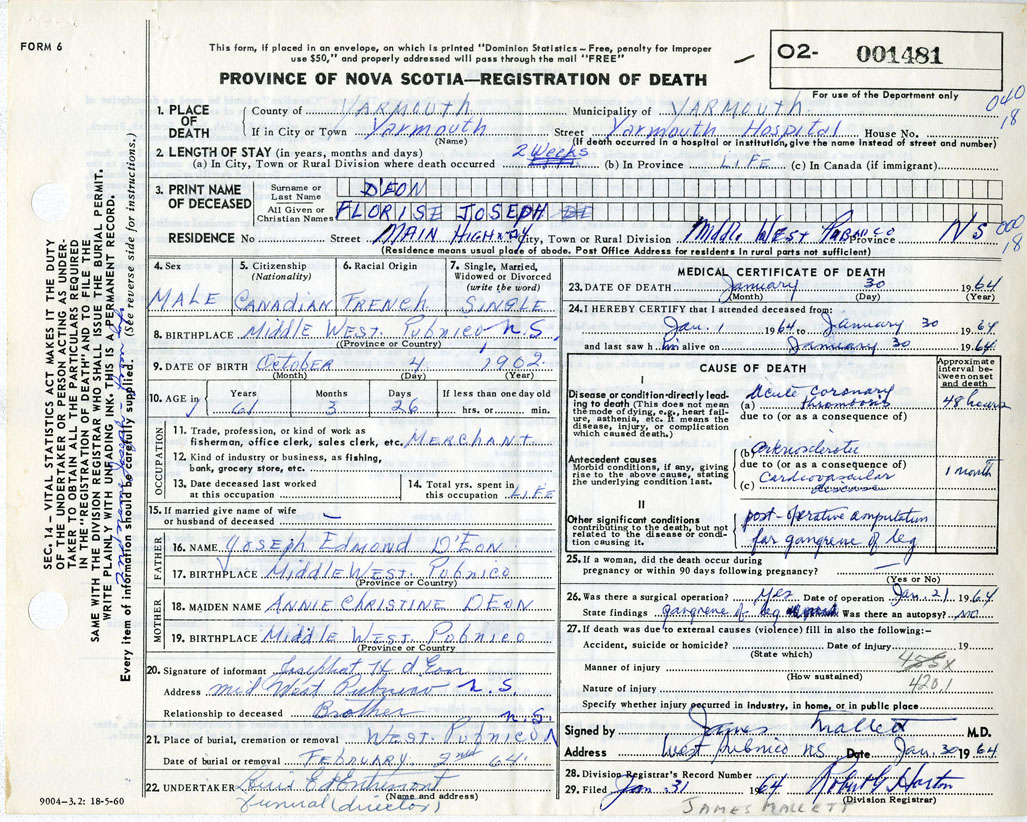 FORM 6
This form, if placed in an envelope, on which is printed "Dominion Statistics – Free, penalty for improper
use $50," and properly addressed will pass through the mail "FREE"
PROVINCE OF NOVA SCOTIA—REGISTRATION OF DEATH
O2- 001481
For use of the Department only
040
18
1. PLACE OF DEATH
County of YARMOUTH Municipality of YARMOUTH
If in City or Town Yarmouth Street Yarmouth Hospital House No.
(Name) (If death occurred in a hospital or institution, give the name instead of street and number)
2. LENGTH OF STAY (in years, months and days)
(a) In City, Town or Rural Division where death occurred 2 Weeks (b) In Province LIFE (c) In Canada (if immigrant)
3. PRINT NAME OF DECEASED
Surname or Last Name D'EON
All Given or Christian Names FLORISE JOSEPH
RESIDENCE No Street MAIN HIGHWAY City, Town or Rural Division Middle WEST PUBNICO Province NS
000
18
(Residence means usual place of abode. Post Office Address for residents in rural parts not sufficient)
4. Sex
MALE
5. Citizenship (Nationality)
CANADIAN
6. Racial Origin
FRENCH
7. Single, Married, Widowed or Divorced (write the word)
SINGLE
8. BIRTHPLACE Middle WEST. Pubnico N.S.
(Province or Country)
9. DATE OF BIRTH October 4, 1902
(Month) (Day) (Year)
10. AGE in Years Months Days If less than one day old
61 3 26 hrs. or min.
OCCUPATION
11. Trade, profession, or kind of work as
fisherman, office clerk, sales clerk, etc. MERCHANT
12. Kind of industry or business, as fishing,
bank, grocery store, etc.
13. Date deceased last worked
at this occupation
14. Total yrs. spent in
this occupation LIFE
15. If married give name of wife
or husband of deceased —
FATHER
16. NAME Joseph Edmond D'Eon
17. BIRTHPLACE Middle West Pubnico
(Province or Country)
MOTHER
18. MAIDEN NAME ANNIE CHRISTINE DEON
19. BIRTHPLACE Middle WEST Pubnico
(Province or Country)
20. Signature of informant Josephat H d'Eon
Address Mid West Pubnico N.S.
Relationship to deceased Brother
N.S.
21. Place of burial, cremation or removal WEST. PUBNICO
Date of burial or removal FEBRUARY 2nd 64.
22. UNDERTAKER Louis E d'Entremont
(Name and address)
Funeral (director)
9004-3.2: 18-5-60
MEDICAL CERTIFICATE OF DEATH
23. DATE OF DEATH January 30 1964
(Month) (Day) (Year)
24. I HEREBY CERTIFY that I attended deceased from:
Jan. 1 1964 to January 30 1964
and last saw him alive on January 30 1964
CAUSE OF DEATH
Approximate interval between onset and death
I
Disease or condition directly leading to death (This does not mean
the mode of dying, e.g., heart failure, asthenia, etc. It means the
disease, injury, or complication
which caused death.)
(a) Acute coronary
thrombosis 48 hours
due to (or as a consequence of)
Antecedent causes
Morbid conditions, if any, giving
rise to the above cause, stating
the underlying condition last.
(b)
due to (or as a consequence of) 1 month
(c) Cardiovascular
disease
II
Other significant conditions
contributing to the death, but not
related to the disease or condition causing it.
post-operative amputation
for gangrene of leg
25. If a woman, did the death occur during
pregnancy or within 90 days following pregnancy? —
(Yes or No)
26. Was there a surgical operation? Yes Date of operation Jan. 21 1964
State findings gangrene of leg Was there an autopsy? no
27. If death was due to external causes (violence) fill in also the following:–
Accident, suicide or homicide? Date of injury 19
(State which)
Manner of injury
(How sustained)
Nature of injury
455X
420.1
Specify whether injury occurred in industry, in home, or in public place
Signed by James Mallett M.D.
Address West Pubnico NS Date Jan. 30 1964
28. Division Registrar's Record Number
29. Filed Jan. 31 1964 Robert G Horton
(Division Registrar)
JAMES MALLETT
SEC. 14 – VITAL STATISTICS ACT MAKES IT THE DUTY
OF THE UNDERTAKER OR PERSON ACTING AS UNDER-
TAKER TO OBTAIN ALL THE PARTICULARS REQUIRED
IN THE "REGISTRATION OF DEATH" AND TO FILE THE
SAME WITH THE DIVISION REGISTRAR WHO SHALL ISSUE THE BURIAL PERMIT.
WRITE PLAINLY WITH UNFADING INK. THIS IS A PERMANENT RECORD.
Every item of information should be carefully supplied. (See reverse side for instructions.)